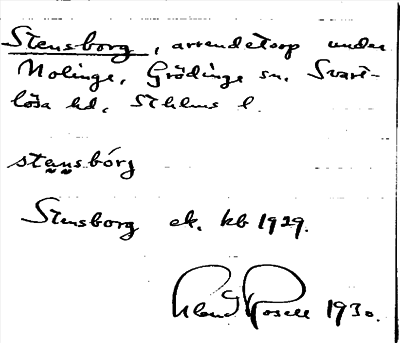 Stensborg, arrendetorp under
Nolinge, Grödinge sn. Svart-
lösa hd, Sthlms l.
stensbórg
Stensborg ek. kb 1929.
Rosell 1930.